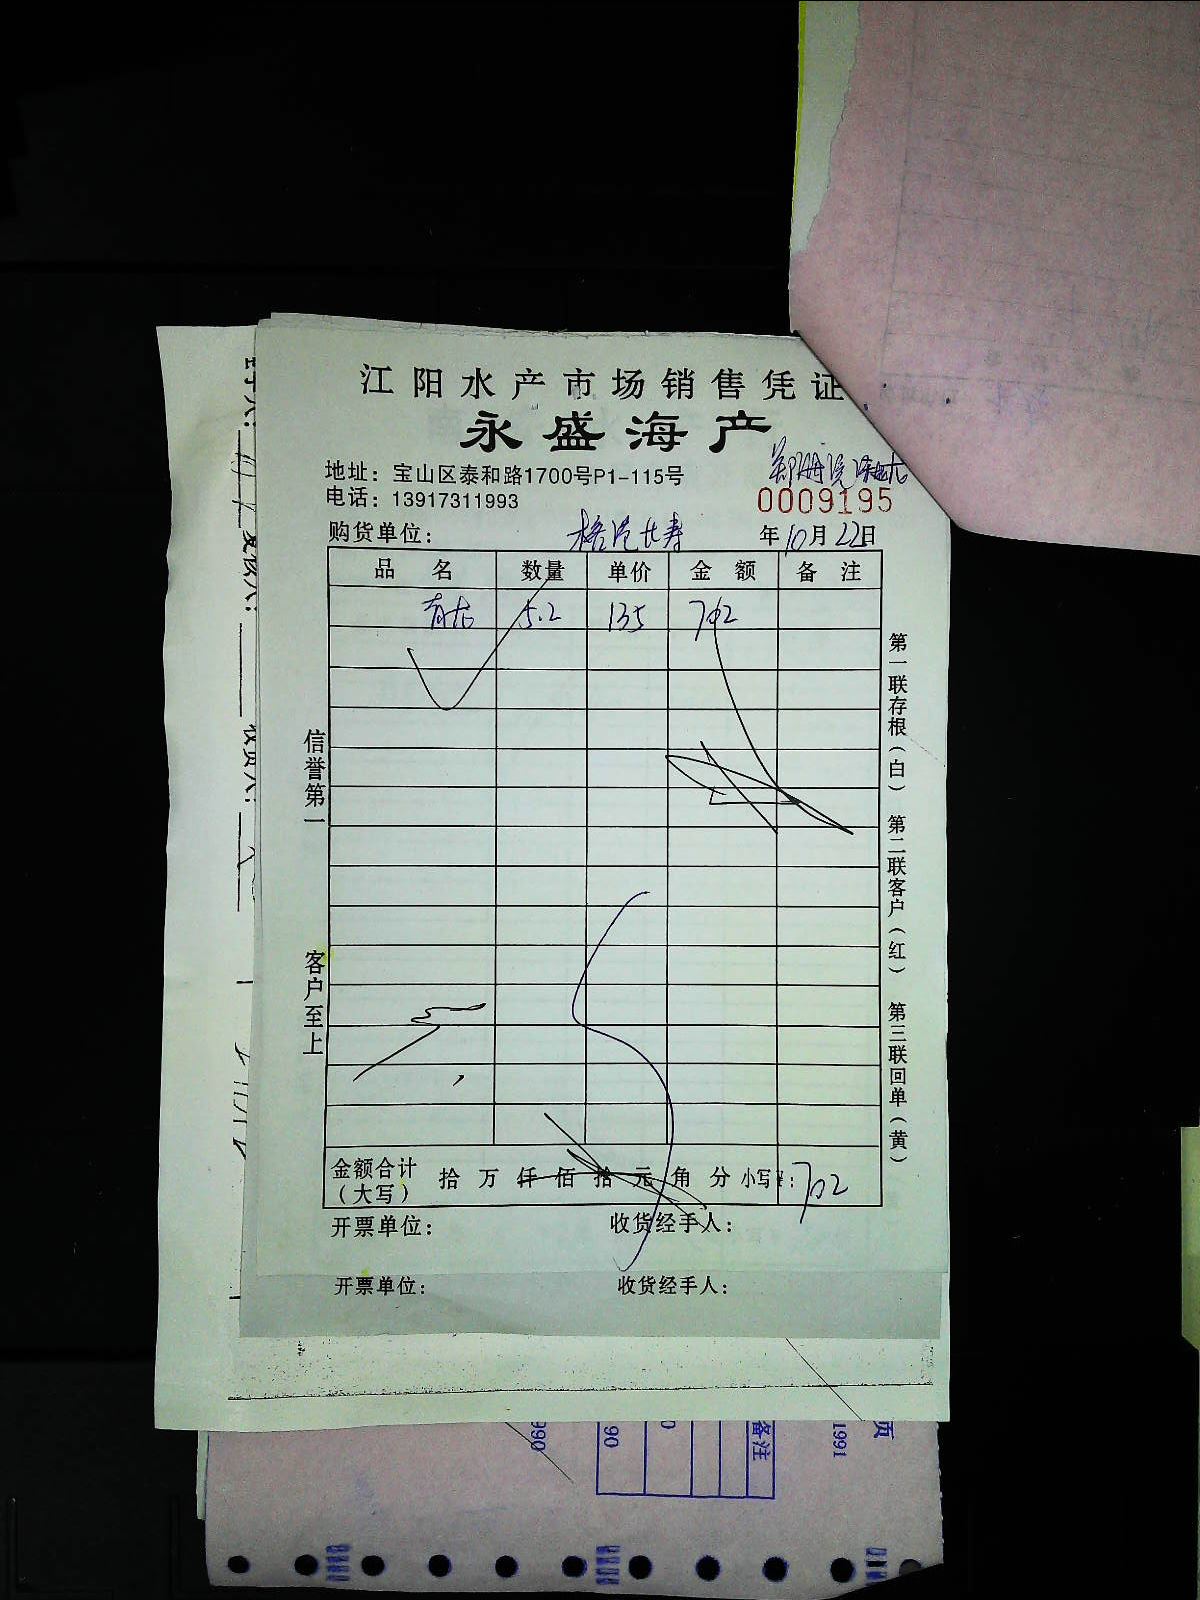 江阳水产市场销售凭证
永盛海产
地址：宝山区泰和路1700号P1-115号
电话：13917311993
0009195
购货单位： 年10月22日
品名 数量 单价 金额 备注
5.2 135 702
信誉第一
客户至上
第一联存根（白） 第二联客户（红） 第三联回单（黄）
金额合计（大写） 拾 万 仟 佰 拾 元 角 分 小写¥：702
开票单位： 收货经手人：
开票单位： 收货经手人：
990
90
0
备注
1991
页